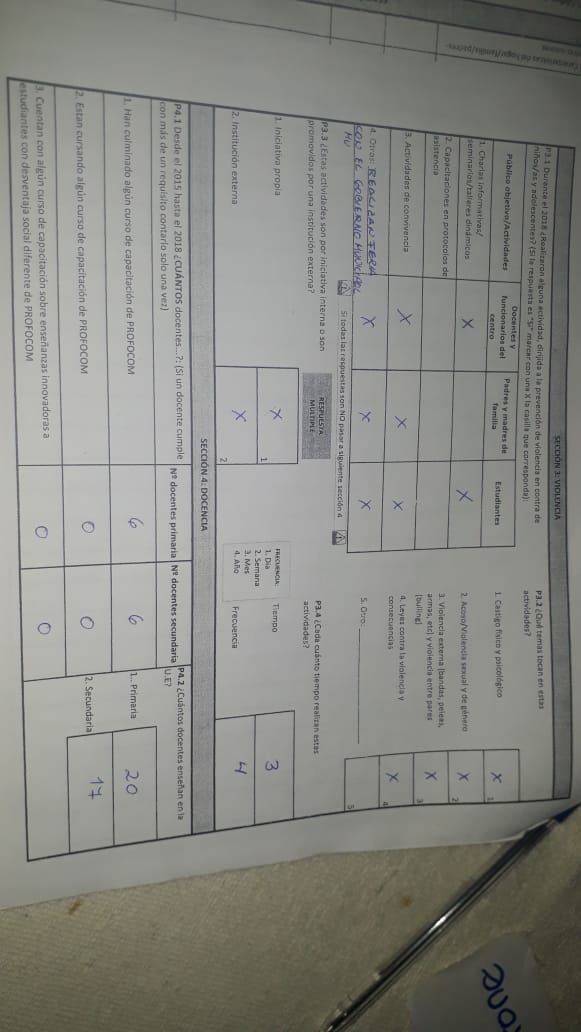 Características del hogar/familia/padres-
SECCIÓN 3: VIOLENCIA
P3.1 Durante el 2018 ¿Realizaron alguna actividad, dirijida a la prevención de violencia en contra de
niños/as y adolescentes? (Si la respuesta es "SI" marcar con una X la casilla que corresponda):
Público objetivo/Actividades
Docentes y
funcionarios del
centro
Padres y madres de
familia
Estudiantes
1. Charlas informativas/
seminarios/talleres dinámicos
X
X
2. Capacitaciones en protocolos de
asistencia
3. Actividades de convivencia
X
X
X
4. Otros: REALIZAN FERIA
CON EL GOBIERNO MUNICIPAL
X
X
X
Si todas las respuestas son NO pasar a siguiente sección 4
P3.2 ¿Qué temas tocan en estas
actividades?
1. Castigo físico y psicológico
X
1
2. Acoso/Violencia sexual y de género
X
2
3. Violencia externa (bandas, peleas,
armas, etc) y violencia entre pares
(bulling)
X
3
4. Leyes contra la violencia y
consecuencias
X
4
5. Otro:
5
P3.3 ¿Estas actividades son por iniciativa interna o son
promovidos por una institución externa?
RESPUESTA
MÚLTIPLE
1. Iniciativa propia
X
1
2. Institución externa
X
2
P3.4 ¿Cada cuánto tiempo realizan estas
actividades?
FRECUENCIA:
1. Dia
2. Semana
3. Mes
4. Año
Tiempo
3
Frecuencia
4
SECCIÓN 4: DOCENCIA
P4.1 Desde el 2015 hasta el 2018 ¿CUÁNTOS docentes...?: (Si un docente cumple
con más de un requisito contarlo solo una vez)
Nº docentes primaria
Nº docentes secundaria
1. Han culminado algún curso de capacitación de PROFOCOM
6
6
2. Estan cursando algún curso de capacitación de PROFOCOM
0
0
3. Cuentan con algún curso de capacitación sobre enseñanzas innovadoras a
estudiantes con desventaja social diferente de PROFOCOM
0
0
P4.2 ¿Cuántos docentes enseñan en la
U.E?
1.. Primaria
20
2. Secundaria
17